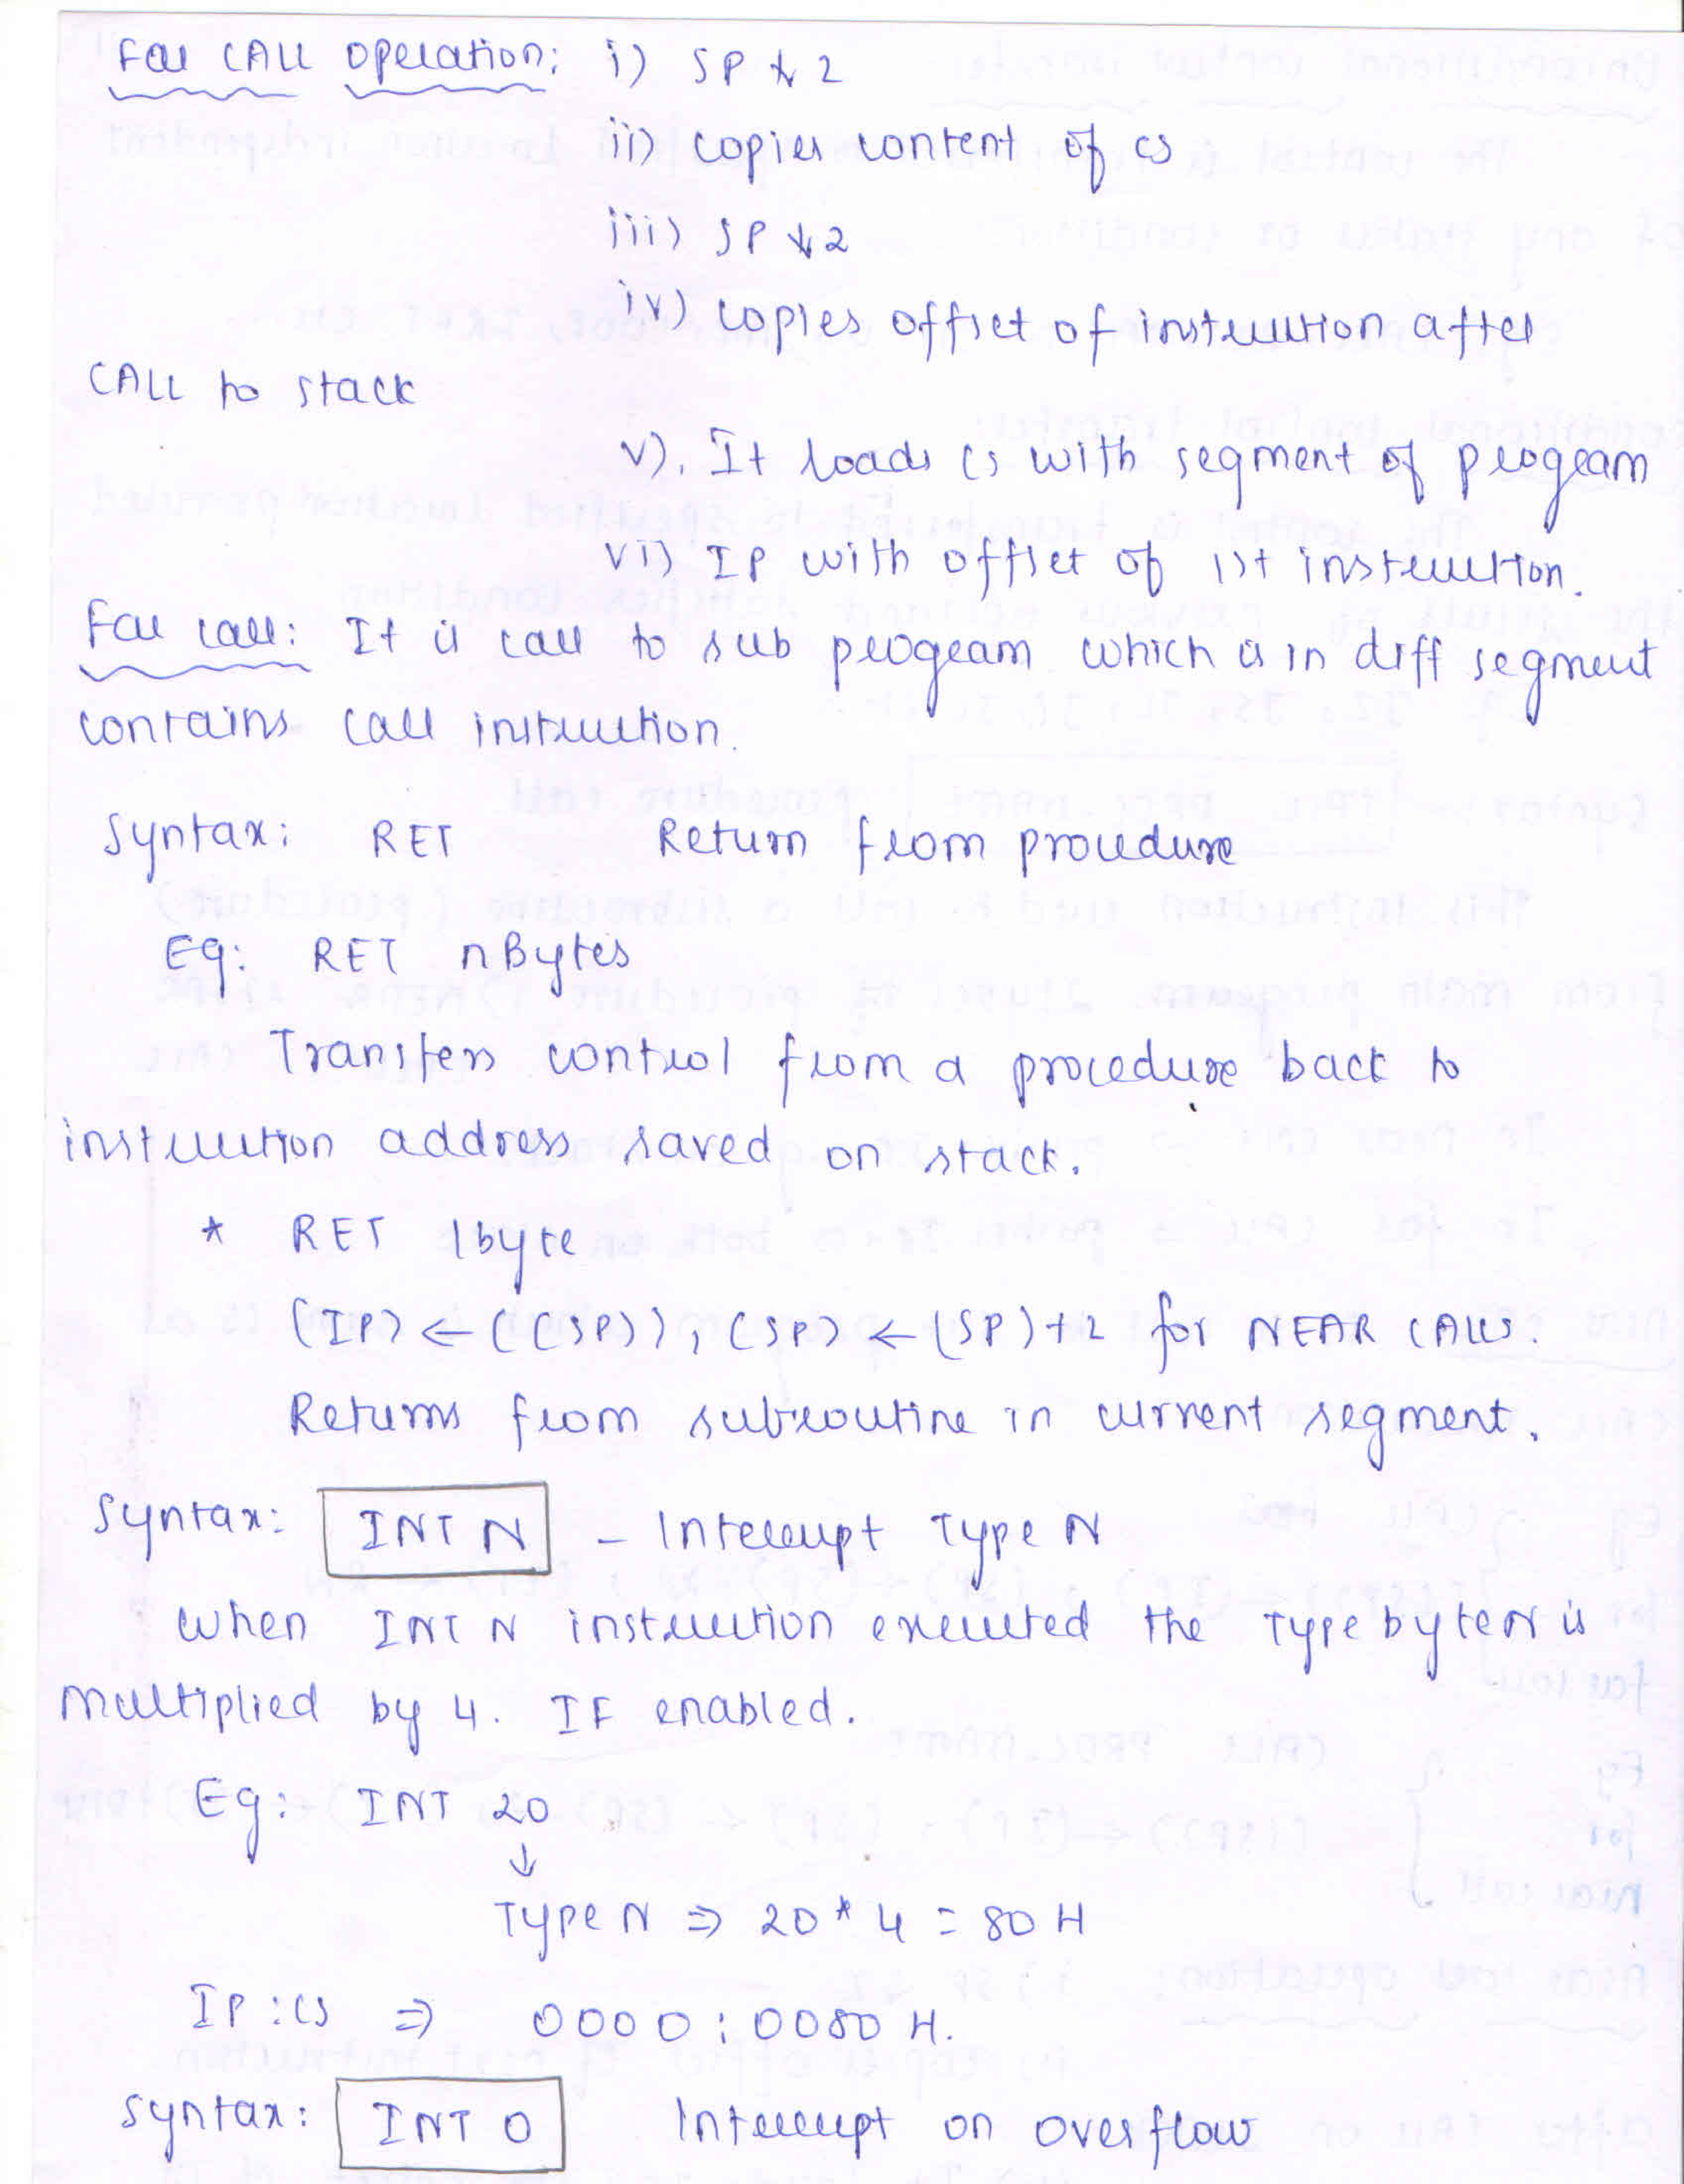 Far CALL operation: i) SP ↓ 2
ii) copies content of cs
iii) SP ↓2
iv) copies offset of instruction after
CALL to stack
v). It loads cs with segment of program
vi) IP with offset of 1st instruction.
Far call: It is call to sub program which is in diff segment
contains call instruction.
Syntax: RET Return from procedure
Eg: RET nBytes
Transfers control from a procedure back to
instruction address saved on stack.
* RET 1byte
(IP) ← ((SP)), (SP) ← (SP)+2 for NEAR CALLS.
Returns from subroutine in current segment.
Syntax: INT N – Interrupt Type N
When INT N instruction executed the Type byte N is
multiplied by 4. IF enabled.
Eg: INT 20
↓
Type N ⇒ 20 * 4 = 80 H
IP:CS ⇒ 0000:0080 H.
Syntax: INT O Interrupt on overflow